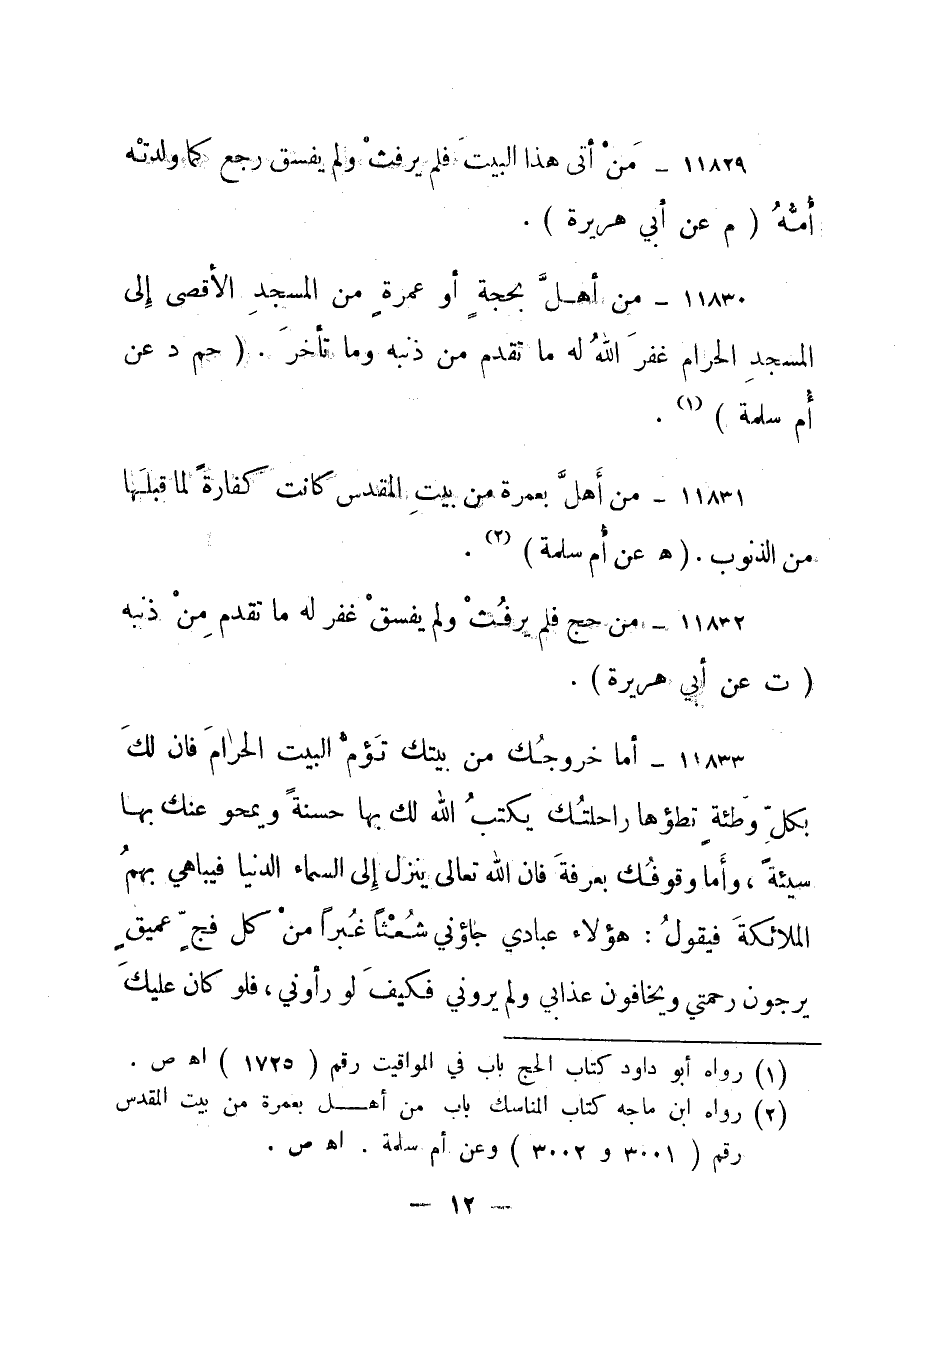 ١١٨٢٩ ــ مَنْ أتى هذا البيتَ فلم يرفثْ ولم يفسق رجع كما ولدتْه
أُمُّهُ ( م عن أبي هريرة ) .
١١٨٣٠ ــ من أهلَّ بحجةٍ أو عمرةٍ من المسجدِ الأقصى إلى
المسجدِ الحرام غفرَ اللهُ له ما تقدم من ذنبه وما تأخرَ . ( حم د عن
أُم سلمة ) (١) .
١١٨٣١ ــ من أَهلَّ بعمرة من بيتِ المقدس كانت كفارةً لما قبلَها
من الذنوب . ( ه عن أُم سلمة ) (٢) .
١١٨٣٢ ــ من حج فلم يرفُثْ ولم يفسقْ غفر له ما تقدم مِنْ ذنبه
( ت عن أبي هريرة ) .
١١٨٣٣ ــ أما خروجُك من بيتك تَؤمُّ البيت الحرامَ فان لكَ
بكلِّ وَطئةٍ تطؤها راحلتُك يكتبُ الله لك بها حسنةً ويمحو عنك بها
سيئةً ، وأَما وقوفُك بعرفةَ فان الله تعالى ينزل إلى السماء الدنيا فيباهي بهمُ
الملائكةَ فيقولُ : هؤلاء عبادي جاؤني شُعْثاً غُبراً منْ كل فجٍّ عميقٍ
يرجون رحمتي ويخافون عذابي ولم يروني فكيفَ لو رأوني ، فلو كان عليكَ
(١) رواه أبو داود كتاب الحج باب في المواقيت رقم ( ١٧٢٥ ) اه ص .
(٢) رواه ابن ماجه كتاب المناسك باب من أهل بعمرة من بيت المقدس
رقم ( ٣٠٠١ و ٣٠٠٢ ) وعن أم سلمة . اه ص .
— ١٢ —